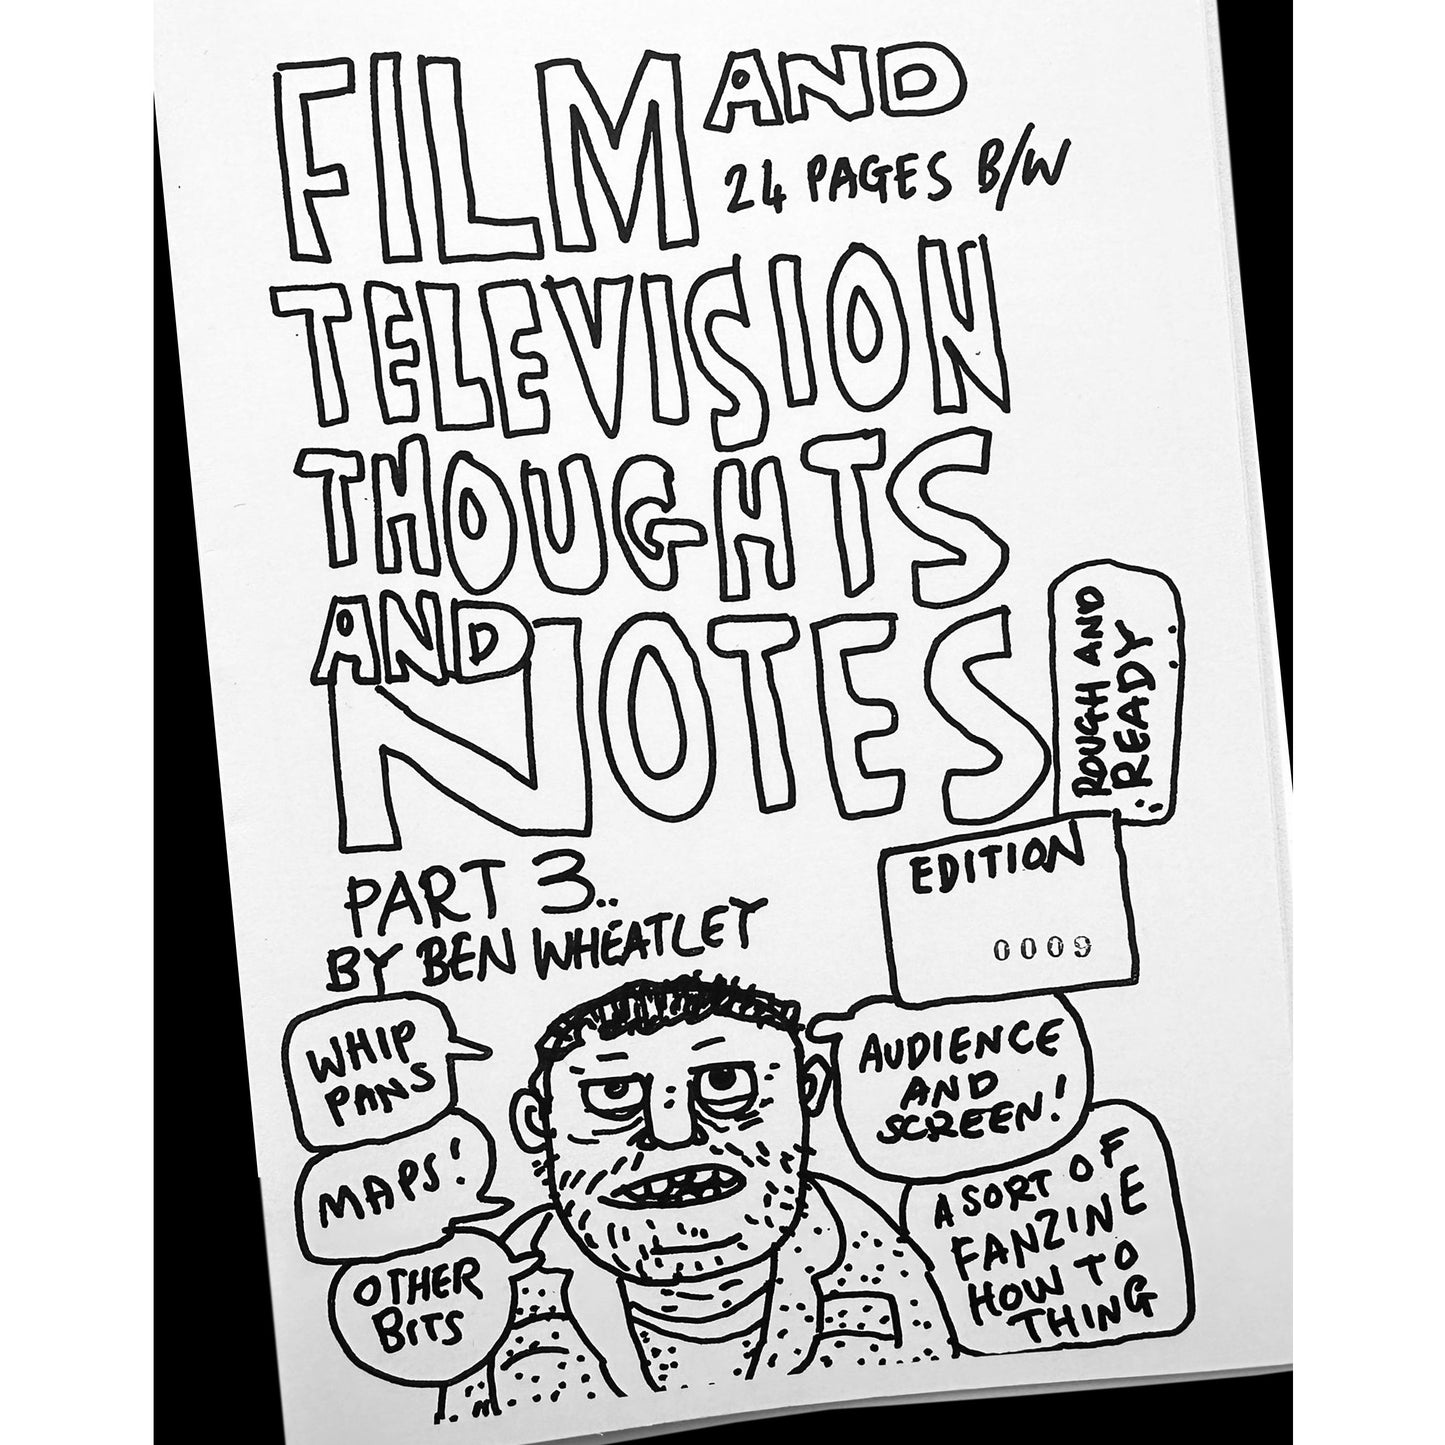 FILM AND
24 PAGES B/W
TELEVISION
THOUGHTS
AND
NOTES
ROUGH AND
READY
PART 3..
BY BEN WHEATLEY
EDITION
0009
WHIP
PANS
MAPS!
OTHER
BITS
AUDIENCE
AND
SCREEN!
A SORT OF
FANZINE
HOW TO
THING